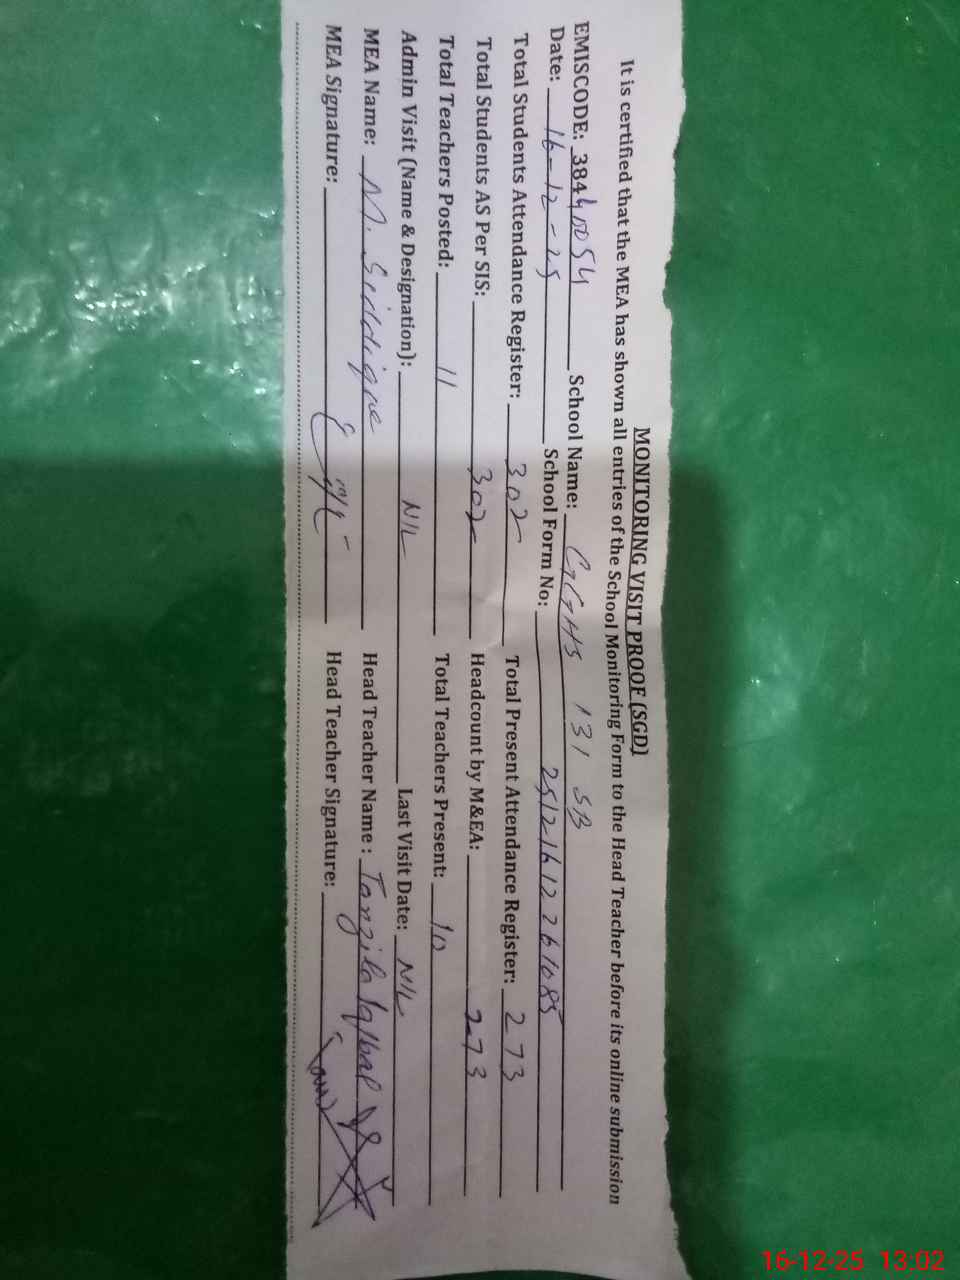 MONITORING VISIT PROOF (SGD)
It is certified that the MEA has shown all entries of the School Monitoring Form to the Head Teacher before its online submission
EMISCODE: 38440054 School Name: GGHS 131 SB
Date: 16-12-25 School Form No: 25121612261085
Total Students Attendance Register: 302 Total Present Attendance Register: 273
Total Students AS Per SIS: 302 Headcount by M&EA: 273
Total Teachers Posted: 11 Total Teachers Present: 10
Admin Visit (Name & Designation): NIL Last Visit Date: NIL
MEA Name: M. Siddique Head Teacher Name : Tanzila Iqbal
MEA Signature: Head Teacher Signature:
16-12-25 13:02